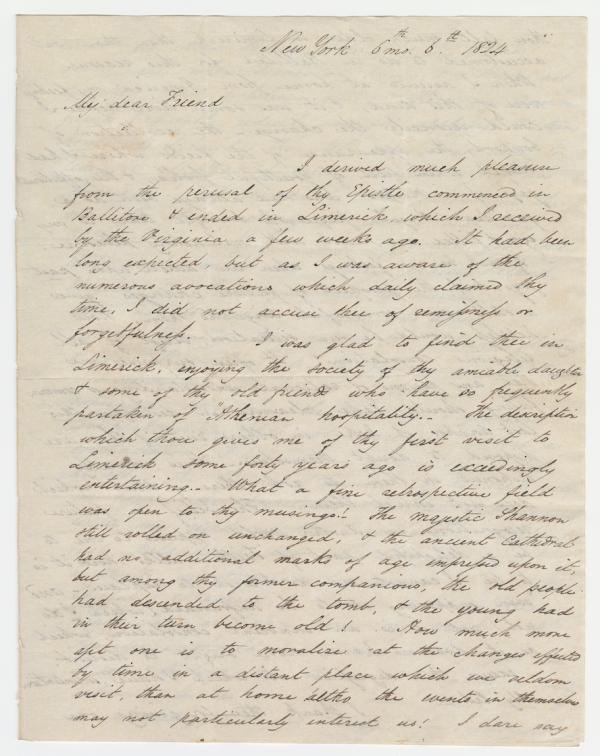 New York 6th mo. 6th 1824
My dear Friend
I derived much pleasure
from the perusal of thy Epistle commenced in
Ballitore & ended in Limerick, which I received
by the Virginia a few weeks ago. It had been
long expected, but as I was aware of the
numerous avocations which daily claimed thy
time, I did not accuse thee of remissness or
forgetfulness. I was glad to find thee in
Limerick, enjoying the society of thy amiable daughter
& some of thy old friends who have so frequently
partaken of "Athenian hospitality.- The description
which thou gives me of thy first visit to
Limerick some forty years ago is exceedingly
entertaining.- What a fine retrospective field
was open to thy musings! The majestic Shannon
still rolled on unchanged, & the ancient Cathedral
had no additional marks of age impressed upon it,
but among thy former companions, the old people
had descended to the tomb, & the young had
in their turn become old! How much more
apt one is to moralize at the changes effected
by time in a distant place which we seldom
visit, than at home altho the events in themselves
may not particularly interest us! I dare say